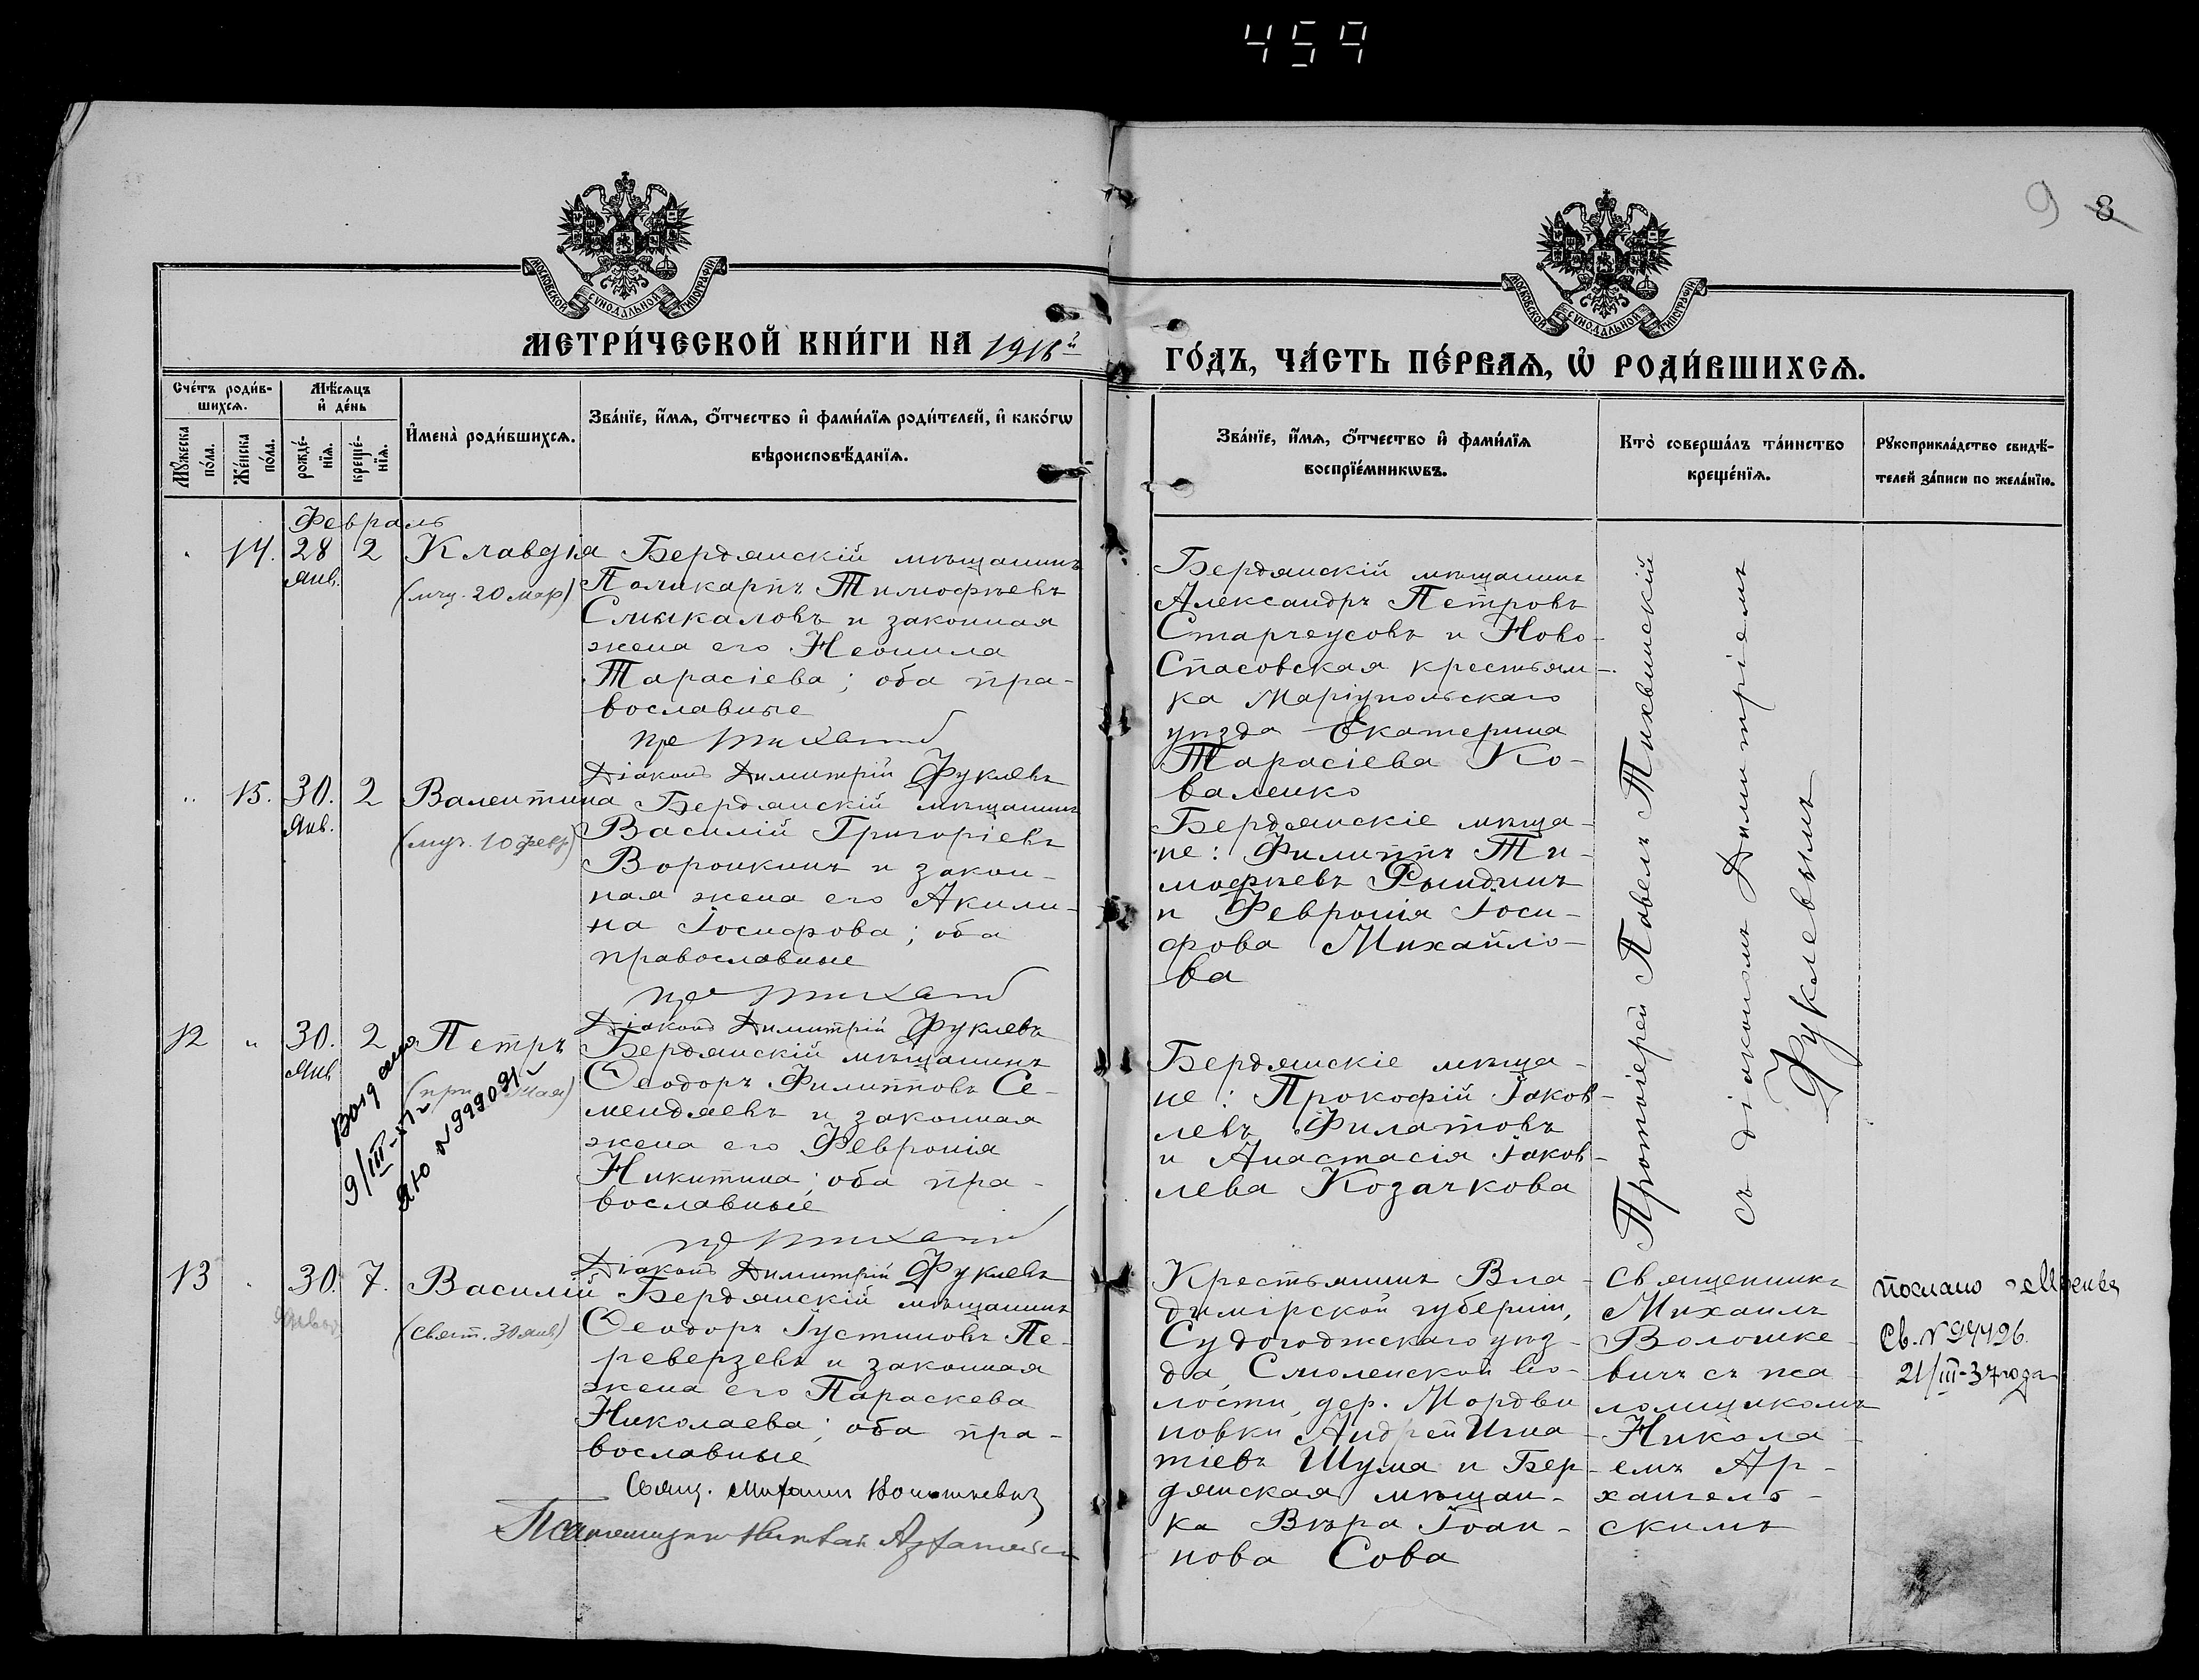 459
9 8
МОСКОВСКОЙ СѴНОДАЛЬНОЙ ТИПОГРАФІИ
МОСКОВСКОЙ СѴНОДАЛЬНОЙ ТИПОГРАФІИ
МЕТРИ́ЧЕСКОЙ КНИ́ГИ НА 1916й
ГО́ДЪ, ЧА́СТЬ ПЕ́РВАѦ, Ѡ҆ РОДИ́ВШИХСѦ.
Сче́тъ роди́в-
шихсѧ.
Мꙋ́жеска по́ла.
Же́нска по́ла.
Мѣ́сѧцъ и҆ де́нь
рожде́-нїѧ.
креще́-нїѧ.
И҆мена̀ роди́вшихсѧ.
Зва́нїе, и҆́мѧ, ѻ҆́тчество и҆ фами́лїѧ роди́телей, и҆ како́гѡ
вѣроисповѣ́данїѧ.
Зва́нїе, и҆́мѧ, ѻ҆́тчество и҆ фами́лїѧ
воспрїе́мникѡвъ.
Кто̀ соверша́лъ та́инство
креще́нїѧ.
Рꙋкоприкла́дство свидѣ́-
телей за́писи по жела́нїю.
Февраль
14. 28 Янв. 2 Клавдія
(мчц. 20 мар)
Бердянскій мѣщанинъ
Поликарпъ Тимофѣевъ
Смыкаловъ и законная
жена его Неонила
Тарасіева; оба пра-
вославные
Діаконъ Димитрій Фуклевъ
Бердянскій мѣщанинъ
Александръ Петровъ
Старчеусовъ и Ново-
Спасовская крестьян-
ка Маріупольскаго
уѣзда Екатерина
Тарасіева Ко-
валенко
15. 30. Янв. 2 Валентина
(муч. 10 февр)
Бердянскій мѣщанинъ
Василій Григоріевъ
Воронкинъ и закон-
ная жена его Акили-
на Іосифова; оба
православные
Діаконъ Димитрій Фуклевъ
Бердянскіе мѣща-
не: Филиппъ Ти-
мофѣевъ Рындинъ
и Февронія Іоси-
фова Михайло-
ва
12 " 30. Янв 2 Петръ
9/III
ЯЮ №999091
Бердянскій мѣщанинъ
Ѳеодоръ Филипповъ Се-
мендяевъ и законная
жена его Февронія
Никитина; оба пра-
вославные
Діаконъ Димитрій Фуклевъ
Бердянскіе мѣща-
не: Прокофій Іаков-
левъ Филатовъ
и Анастасія Іаков-
лева Козачкова
Протоіерей Павелъ Тихвинскій
съ діакономъ Димитріемъ
Фуклевымъ
13 30. 7. Василій
(свят. 30 янв)
Бердянскій мѣщанинъ
Ѳеодоръ Іустиновъ Пе-
реверзевъ и законная
жена его Параскева
Николаева; оба пра-
вославные
Свящ. Михаилъ Волошкевичъ
Крестьянинъ Вла-
димірской губерніи,
Судогоджскаго уѣз-
да, Смоленской во-
лости, дер. Мордви
новки Андрей Игна-
тіевъ Шума и Бер-
дянская мѣщан-
ка Вѣра Іоан-
нова Сова
Священникъ
Михаилъ
Волошке-
вичъ съ пса-
ломщикомъ
Никола-
емъ Ар-
хангель-
скимъ
послано
Св. №94496.
21/III-37 года